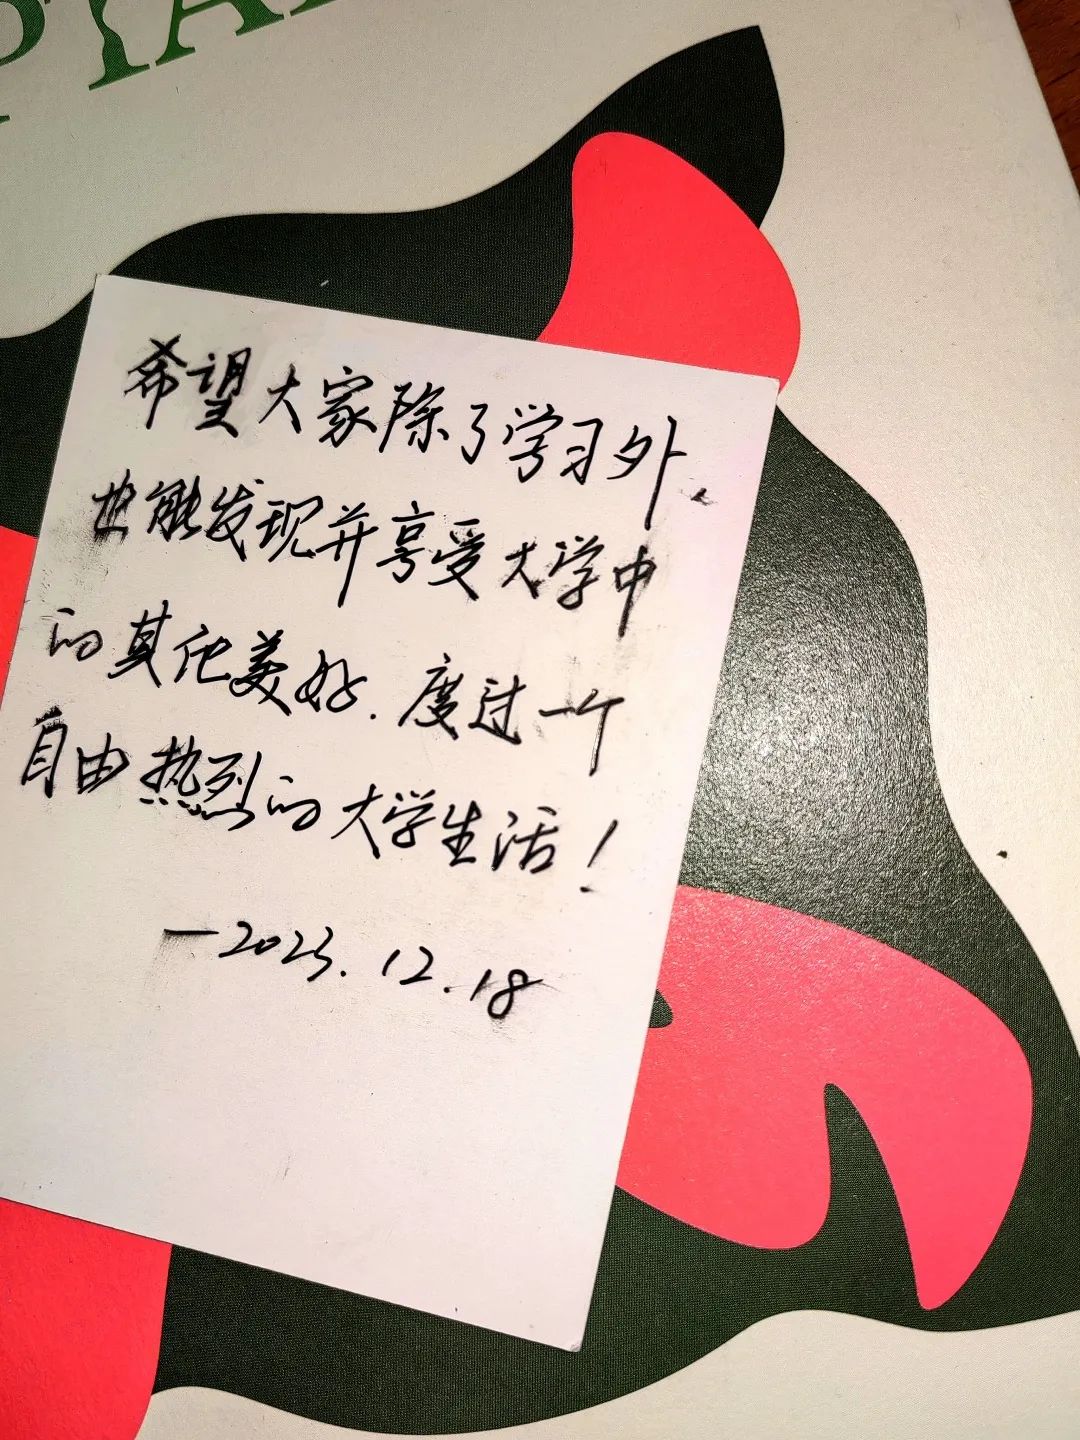 希望大家除了学习外、
也能发现并享受大学中
的其他美好.度过一个
自由热烈的大学生活！
—2023.12.18